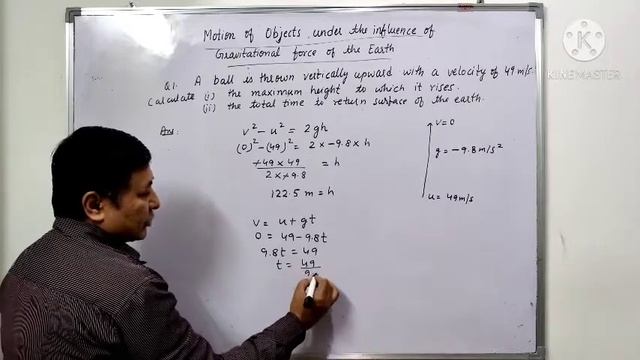 Motion of Objects under the influence of
Gravitational force of the Earth
Q1. A ball is thrown vertically upward with a velocity of 49 m/s.
Calculate (i) the maximum height to which it rises.
(ii) the total time to return surface of the earth.
Ans:
v² - u² = 2gh
(0)² - (49)² = 2 × -9.8 × h
-49 × 49 / 2 × -9.8 = h
122.5 m = h
v = u + gt
0 = 49 - 9.8t
9.8t = 49
t = 49 / 9.
v = 0
g = -9.8 m/s²
u = 49 m/s
KINEMASTER